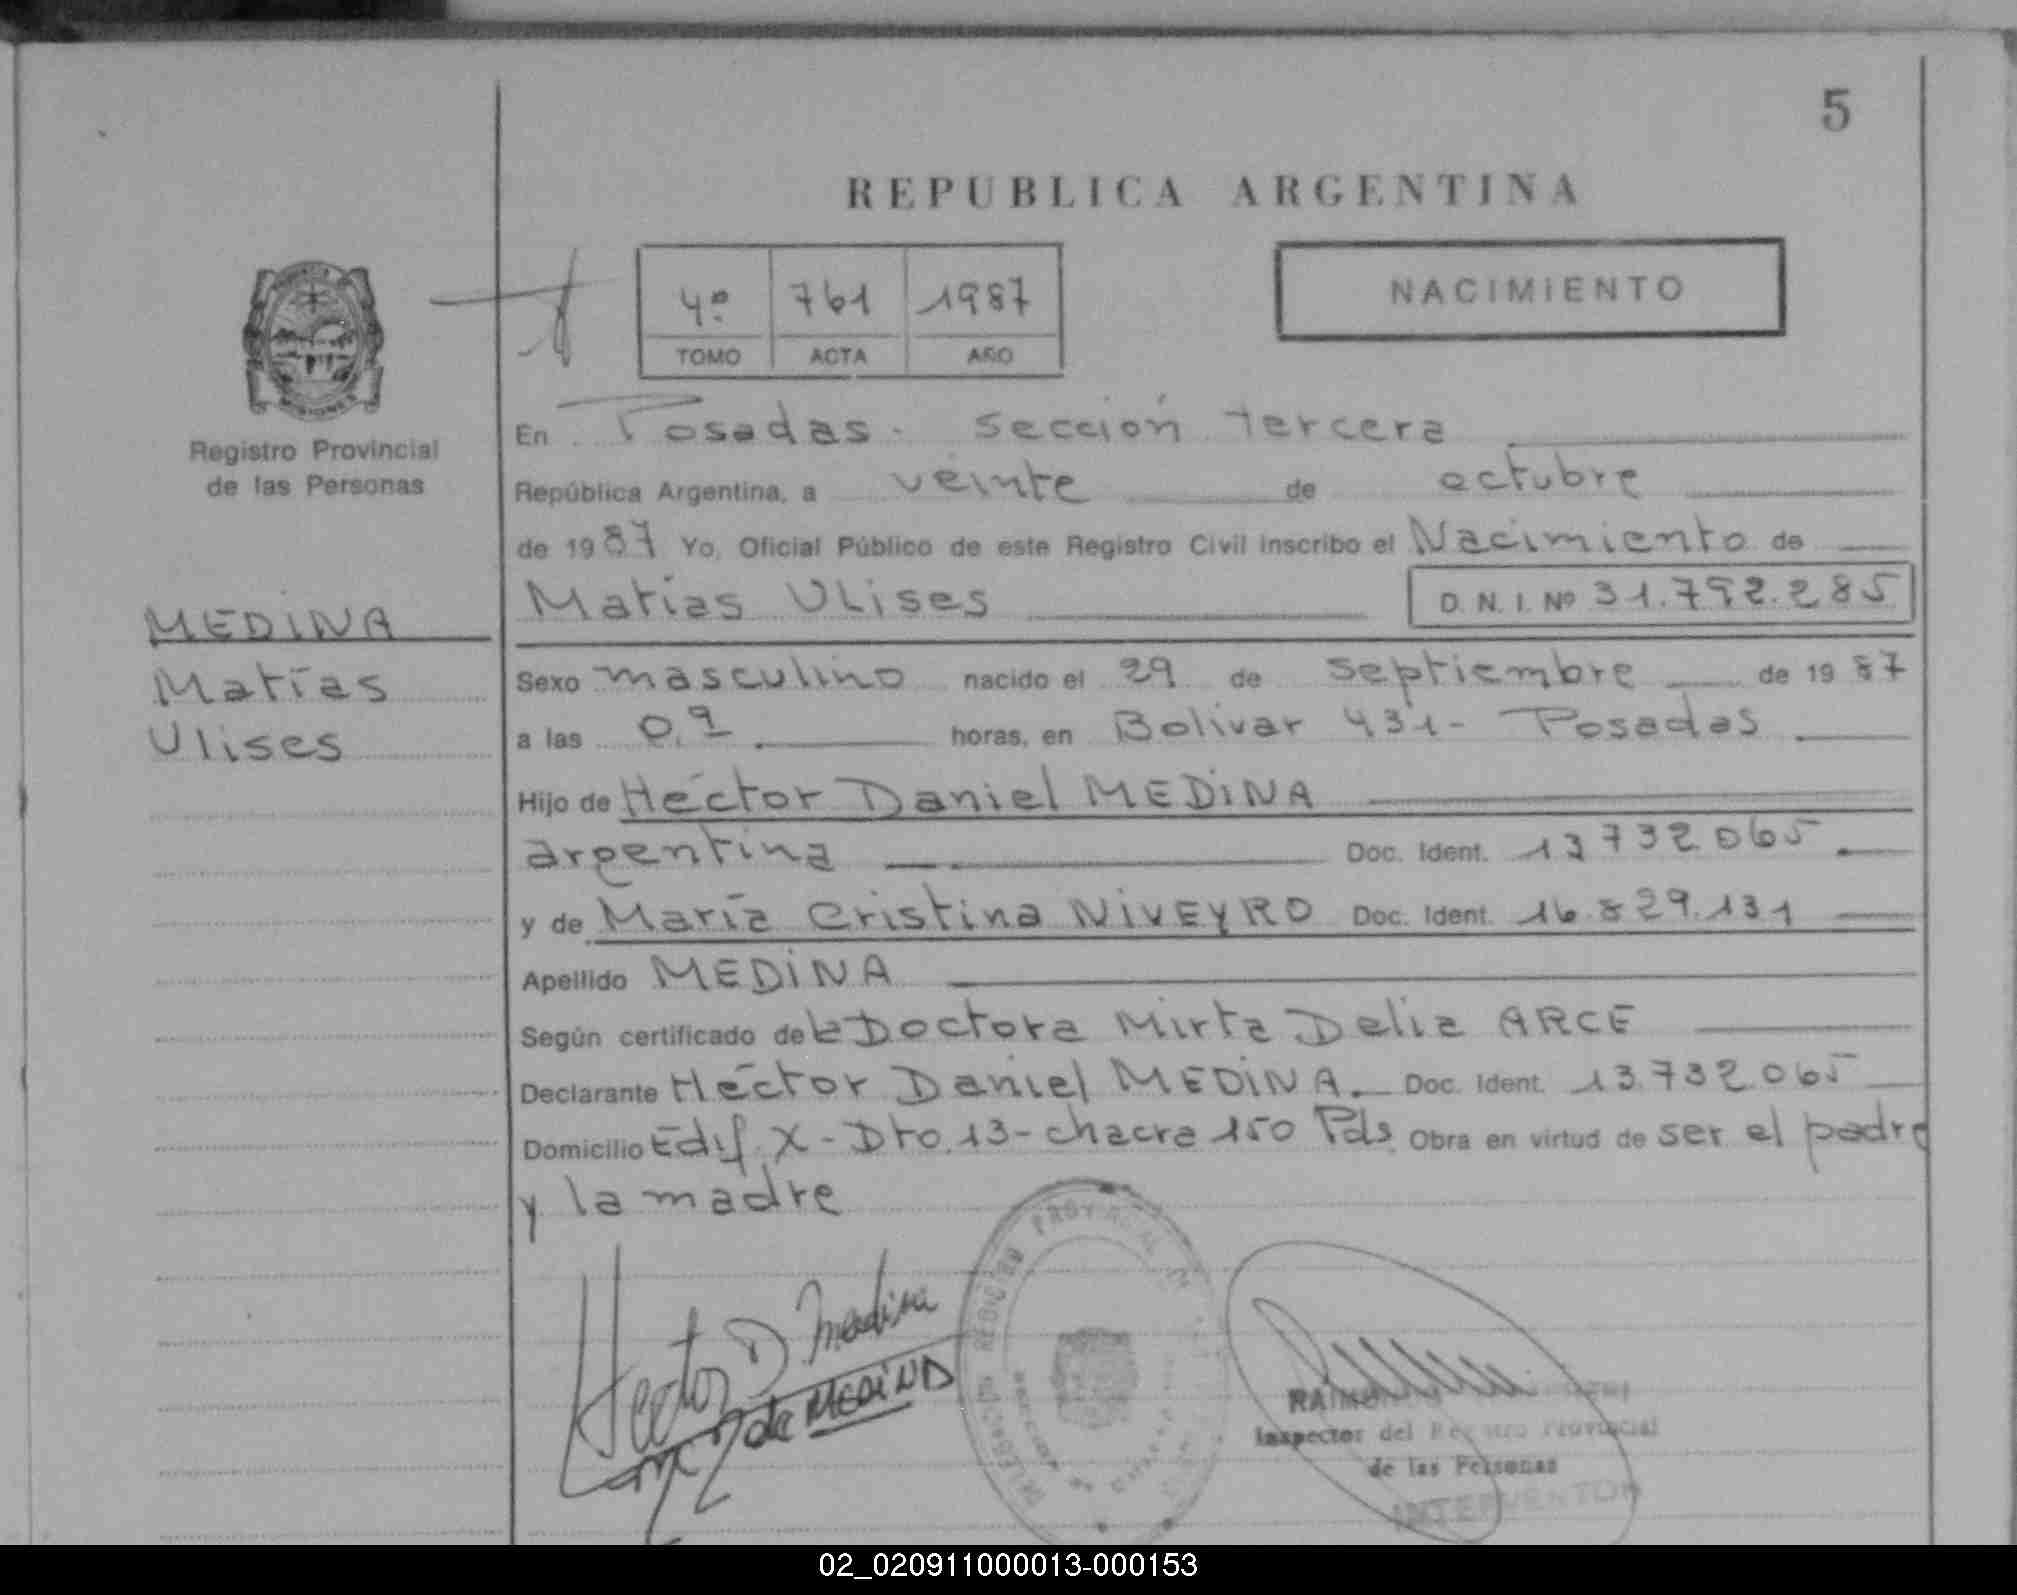 5
REPUBLICA ARGENTINA
4º 761 1987
TOMO ACTA AÑO
NACIMIENTO
MISIONES
Registro Provincial
de las Personas
MEDINA
Matías
Ulises
En Posadas. Sección tercera
República Argentina, a veinte de octubre
de 1987 Yo, Oficial Público de este Registro Civil inscribo el Nacimiento de
Matías Ulises D. N. I. Nº 31.792.285
Sexo masculino nacido el 29 de septiembre de 1987
a las 0,9 horas, en Bolivar 431- Posadas
Hijo de Héctor Daniel MEDINA
argentina Doc. Ident. 13732065
y de María Cristina NIVEYRO Doc. Ident. 16.829.131
Apellido MEDINA
Según certificado de la Doctora Mirta Delia ARCE
Declarante Héctor Daniel MEDINA. Doc. Ident. 13.732.065
Domicilio Edif. X - Dto. 13 - chacra 150 Pds. Obra en virtud de ser el padre
y la madre
Hector D. Medina
de MEDINA
Inspector del Registro Provincial
de las Personas
INTERVENTOR
02_020911000013-000153